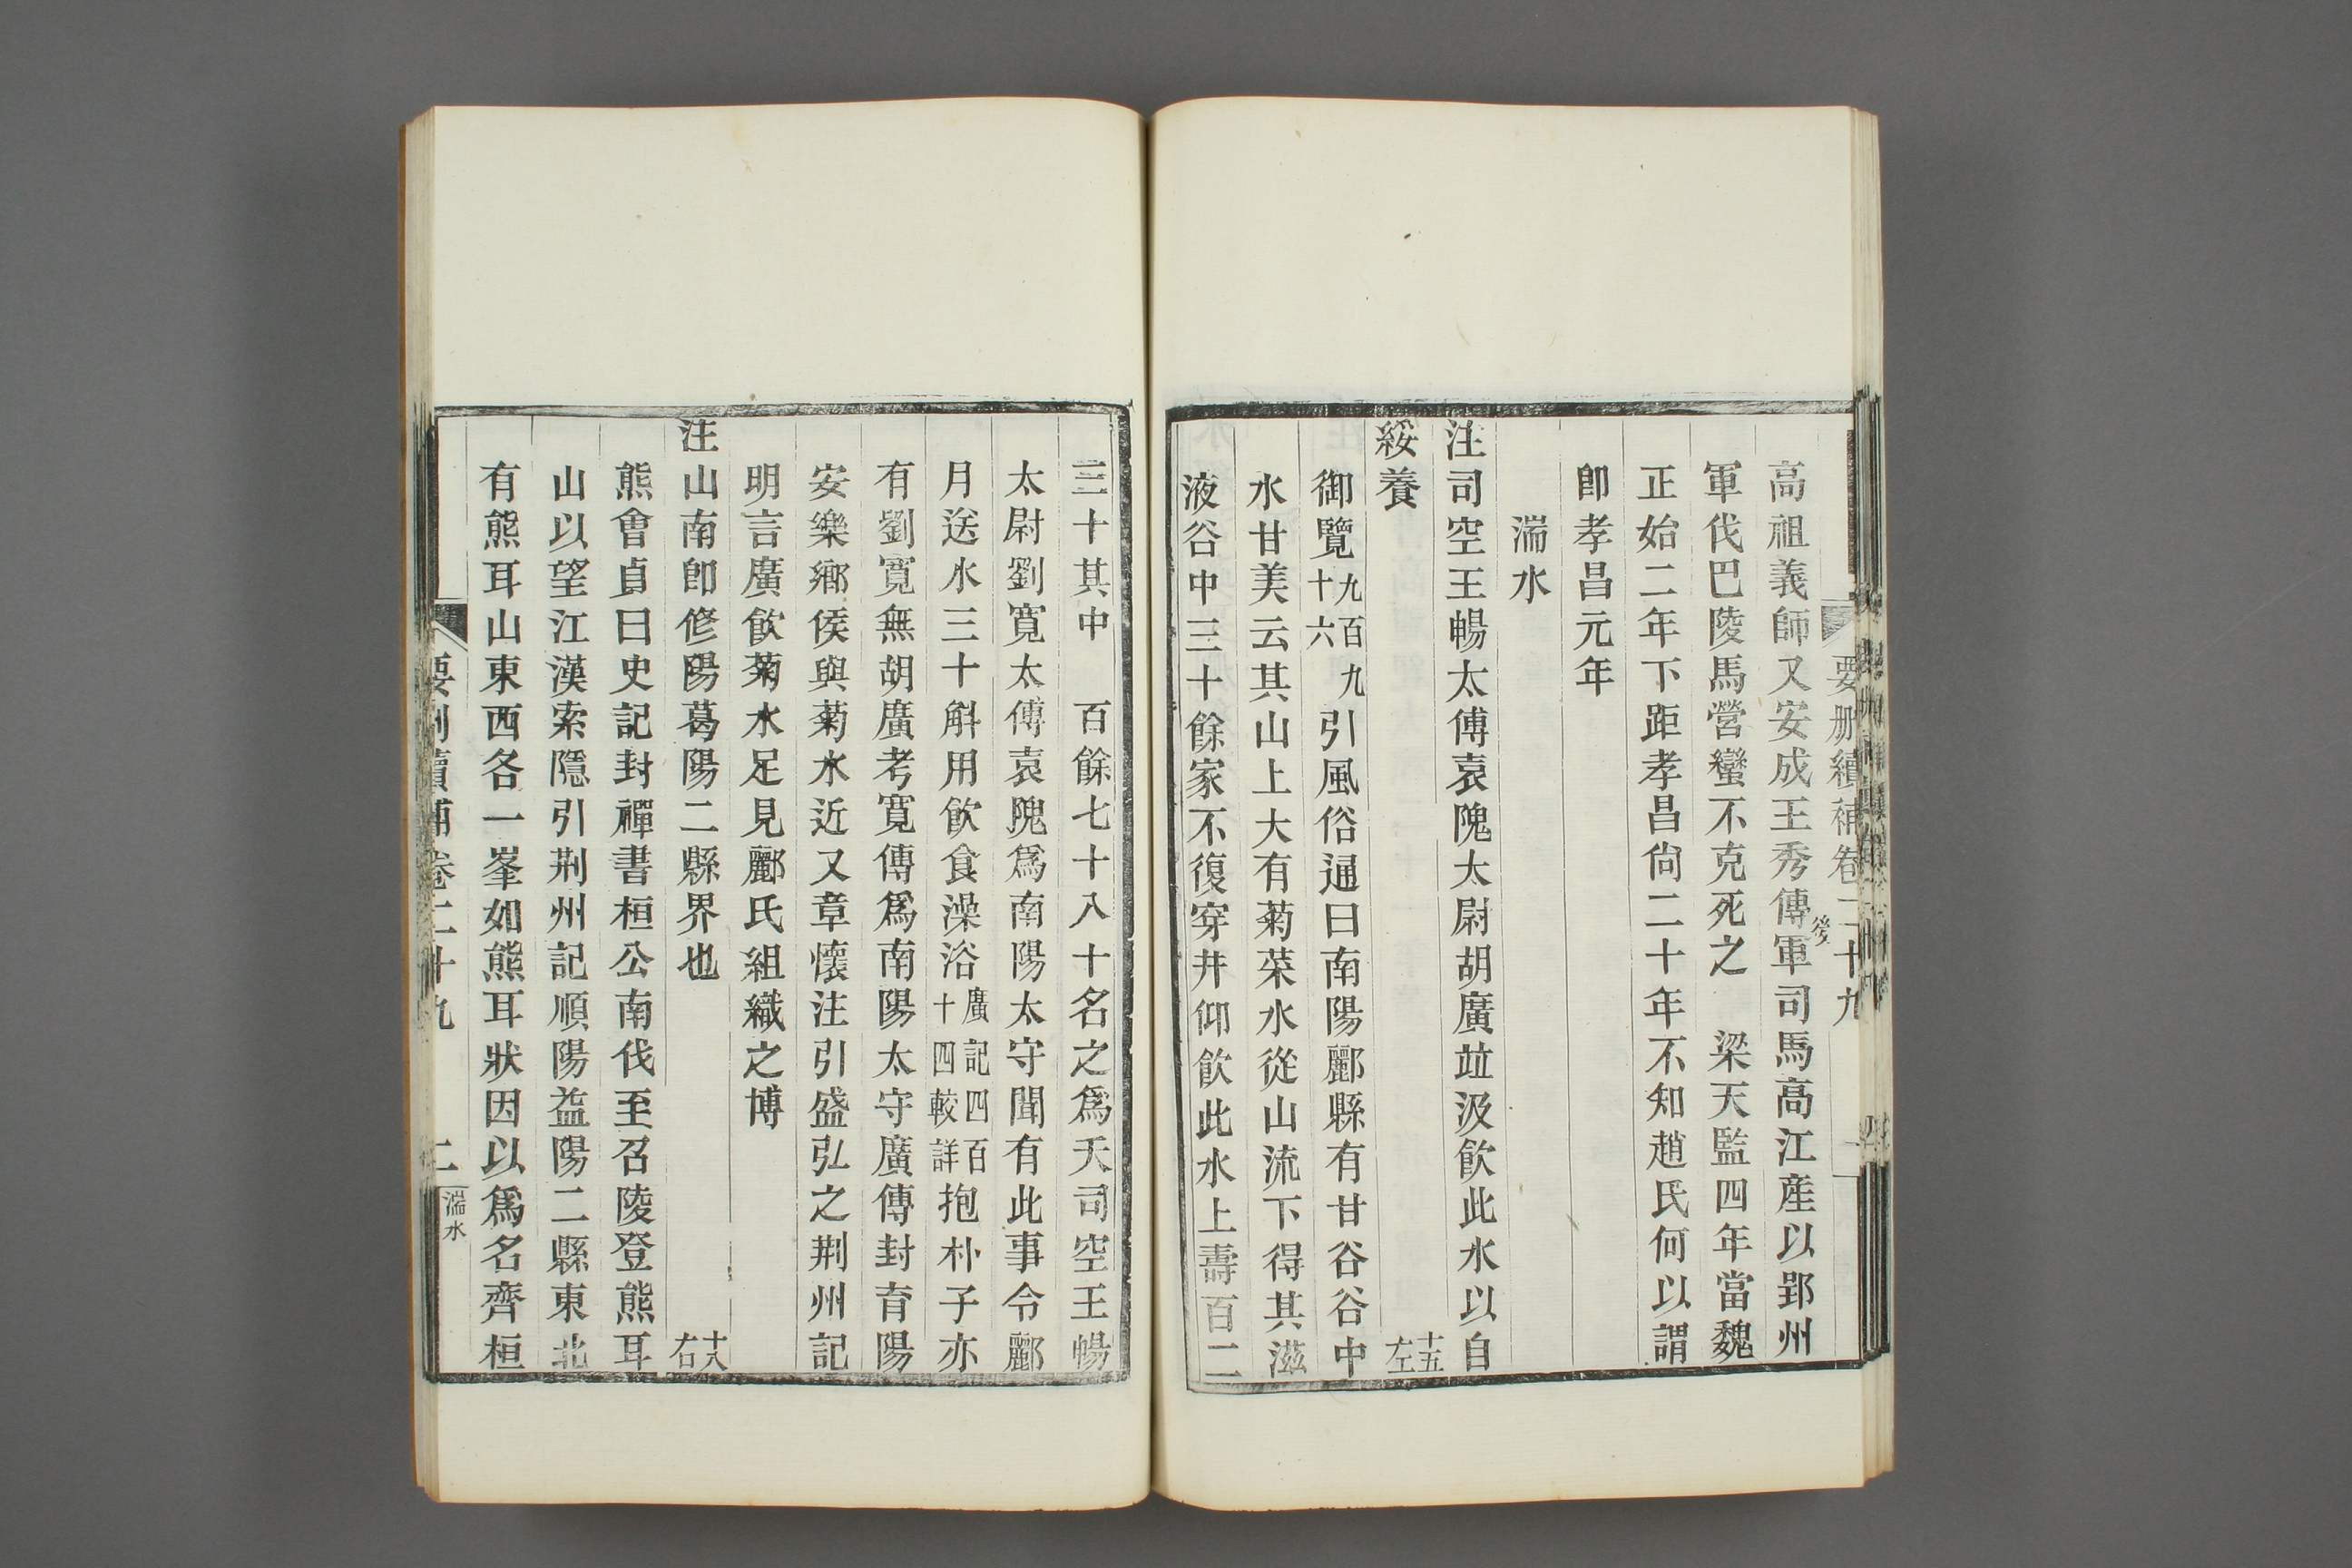 要删續補卷二十九
高祖義師又安成王秀傳後軍司馬高江產以郢州
軍伐巴陵馬營蠻不克死之　梁天監四年當魏
正始二年下距孝昌尙二十年不知趙氏何以謂
卽孝昌元年
湍水
注司空王暢太傅袁隗太尉胡廣竝汲飲此水以自
綏養　十五左
御覽九百九十六九引風俗通曰南陽酈縣有甘谷谷中
水甘美云其山上大有菊菜水從山流下得其滋
液谷中三十餘家不復穿井仰飲此水上壽百二
三十其中　百餘七十八十名之爲夭司空王暢
太尉劉寬太傅袁隗爲南陽太守聞有此事令酈
月送水三十斛用飲食澡浴廣記四百十四較詳抱朴子亦
有劉寬無胡廣考寬傳爲南陽太守廣傳封育陽
安樂鄉侯與菊水近又章懷注引盛弘之荆州記
明言廣飲菊水足見酈氏組織之博
注山南卽修陽葛陽二縣界也　十八右
熊會貞曰史記封禪書桓公南伐至召陵登熊耳
山以望江漢索隱引荆州記順陽益陽二縣東北
有熊耳山東西各一峯如熊耳狀因以爲名齊桓
要删續補卷二十九　二　湍水